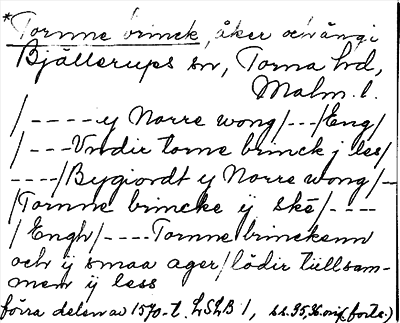 *Tornne brinck, åker och äng i
Bjällerups sn, Torna hd,
Malm. l.
/----y Norre wong/---/Eng/
/---Vndir torne brinck j les/
----/Bygiordt y Norre wong/--
/Tornne brincke ij ske/----
/Engh/----Tornne brinckenn
och ij smaa ager/lödir tiillsam-
menn ij less
förra delen av 1570-t. LSLB 1, ss. 35, 36 orig. (forts.)